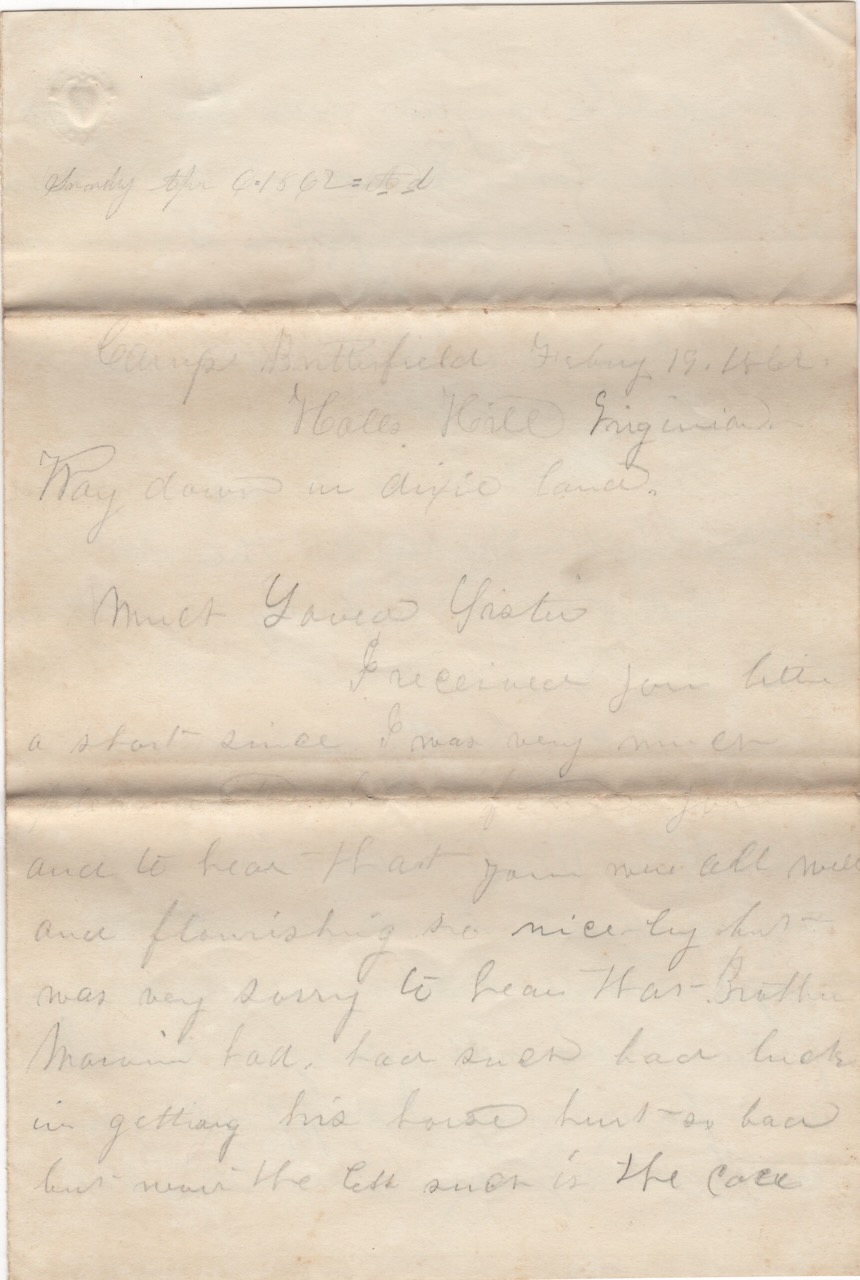 Sunday Apr 6. 1862 =
Camp Butterfield Febuy 19. 1862.
Halls Hill Virginia.
Way down in dixie land.
Much Loved Sister
I received your letter
a short since I was very much
to from you
and to hear that you were all well
and flourishing so nicely but
was very sorry to hear that Brother
Marvin had, had such bad luck
in getting his horse hurt so bad
but never the less such is the case